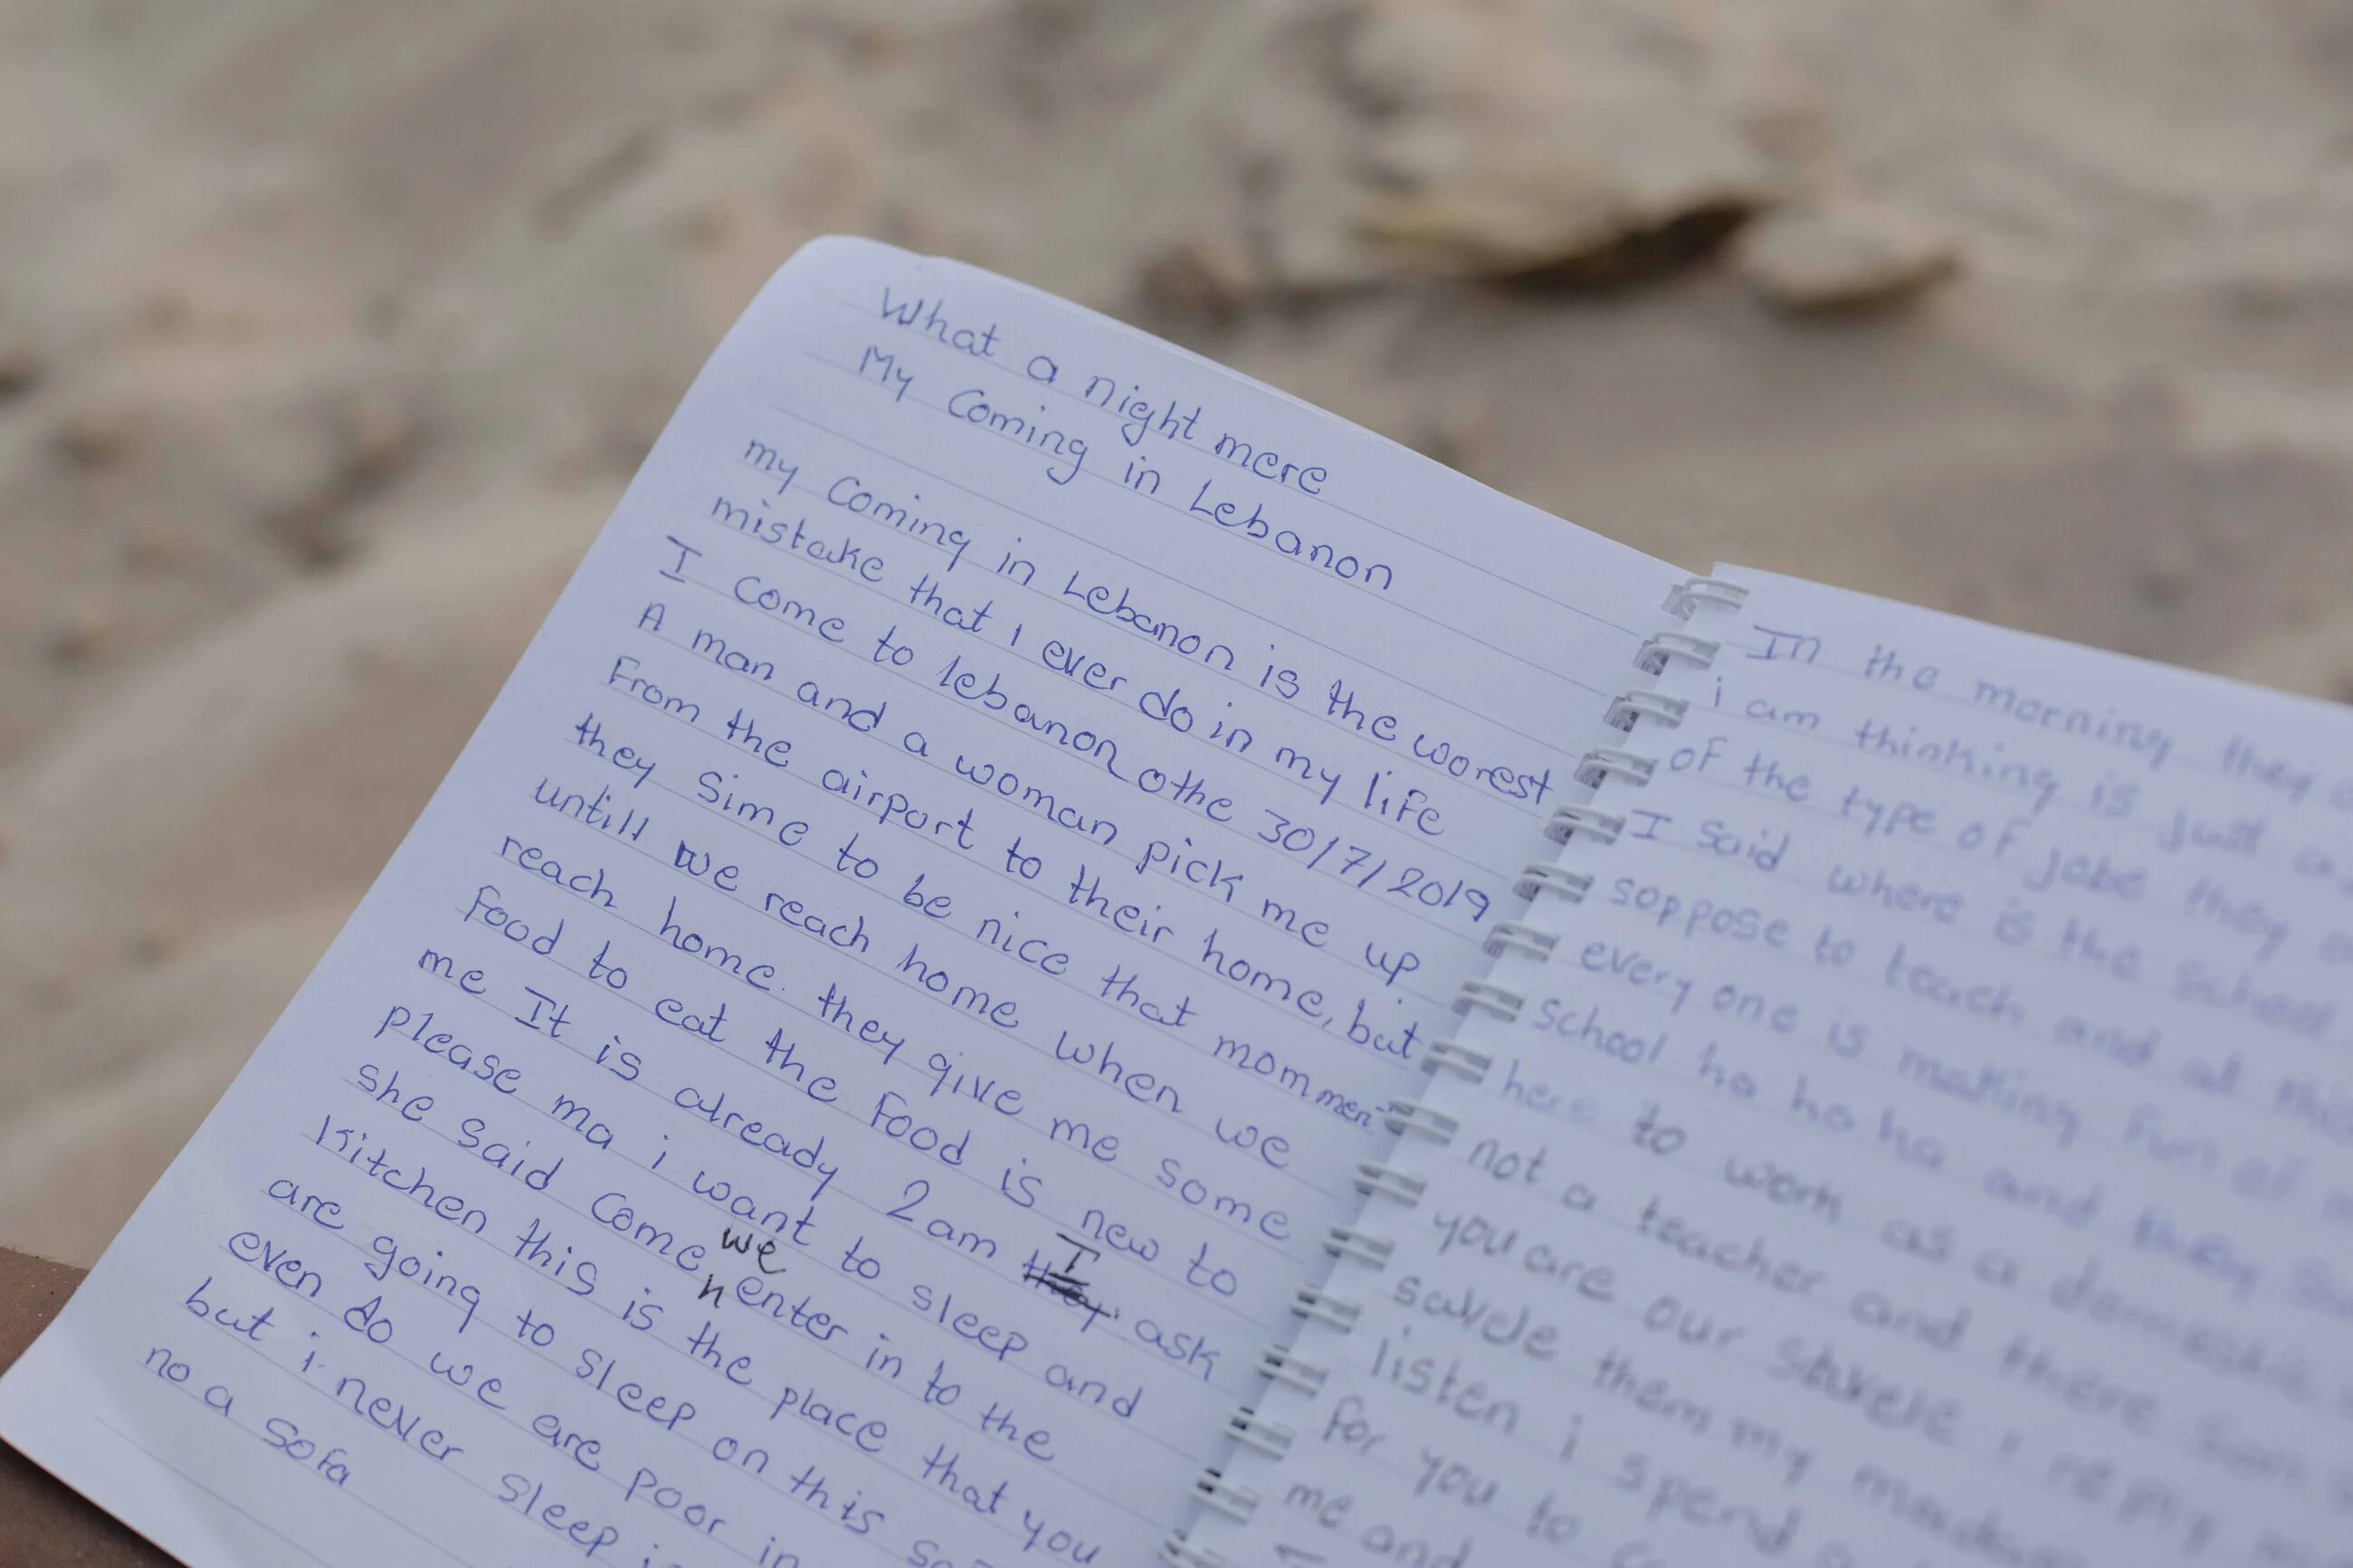 What a night mere
My Coming in Lebanon
my Coming in Lebanon is the worest
mistake that i ever do in my life
I come to lebanon othe 30/7/2019
A man and a woman pick me up
From the airport to their home, but
they Sime to be nice that mommen
untill we reach home when we
reach home. they give me some
Food to eat the Food is new to
me It is already 2am I ask
please ma i want to sleep and
she said Come we enter in to the
Kitchen this is the place that you
are going to sleep on this
even do we are poor in
but i never sleep
no a sofa
In the morning they
i am thinking is just
of the type of jobe they
I said where is the school
soppose to teach and at this
every one is making Fun of
school ha ha ha and they
here to work as a domestic
not a teacher and there
you are our slavele i reply
savele them my madam
listen i spend
for you to
me and